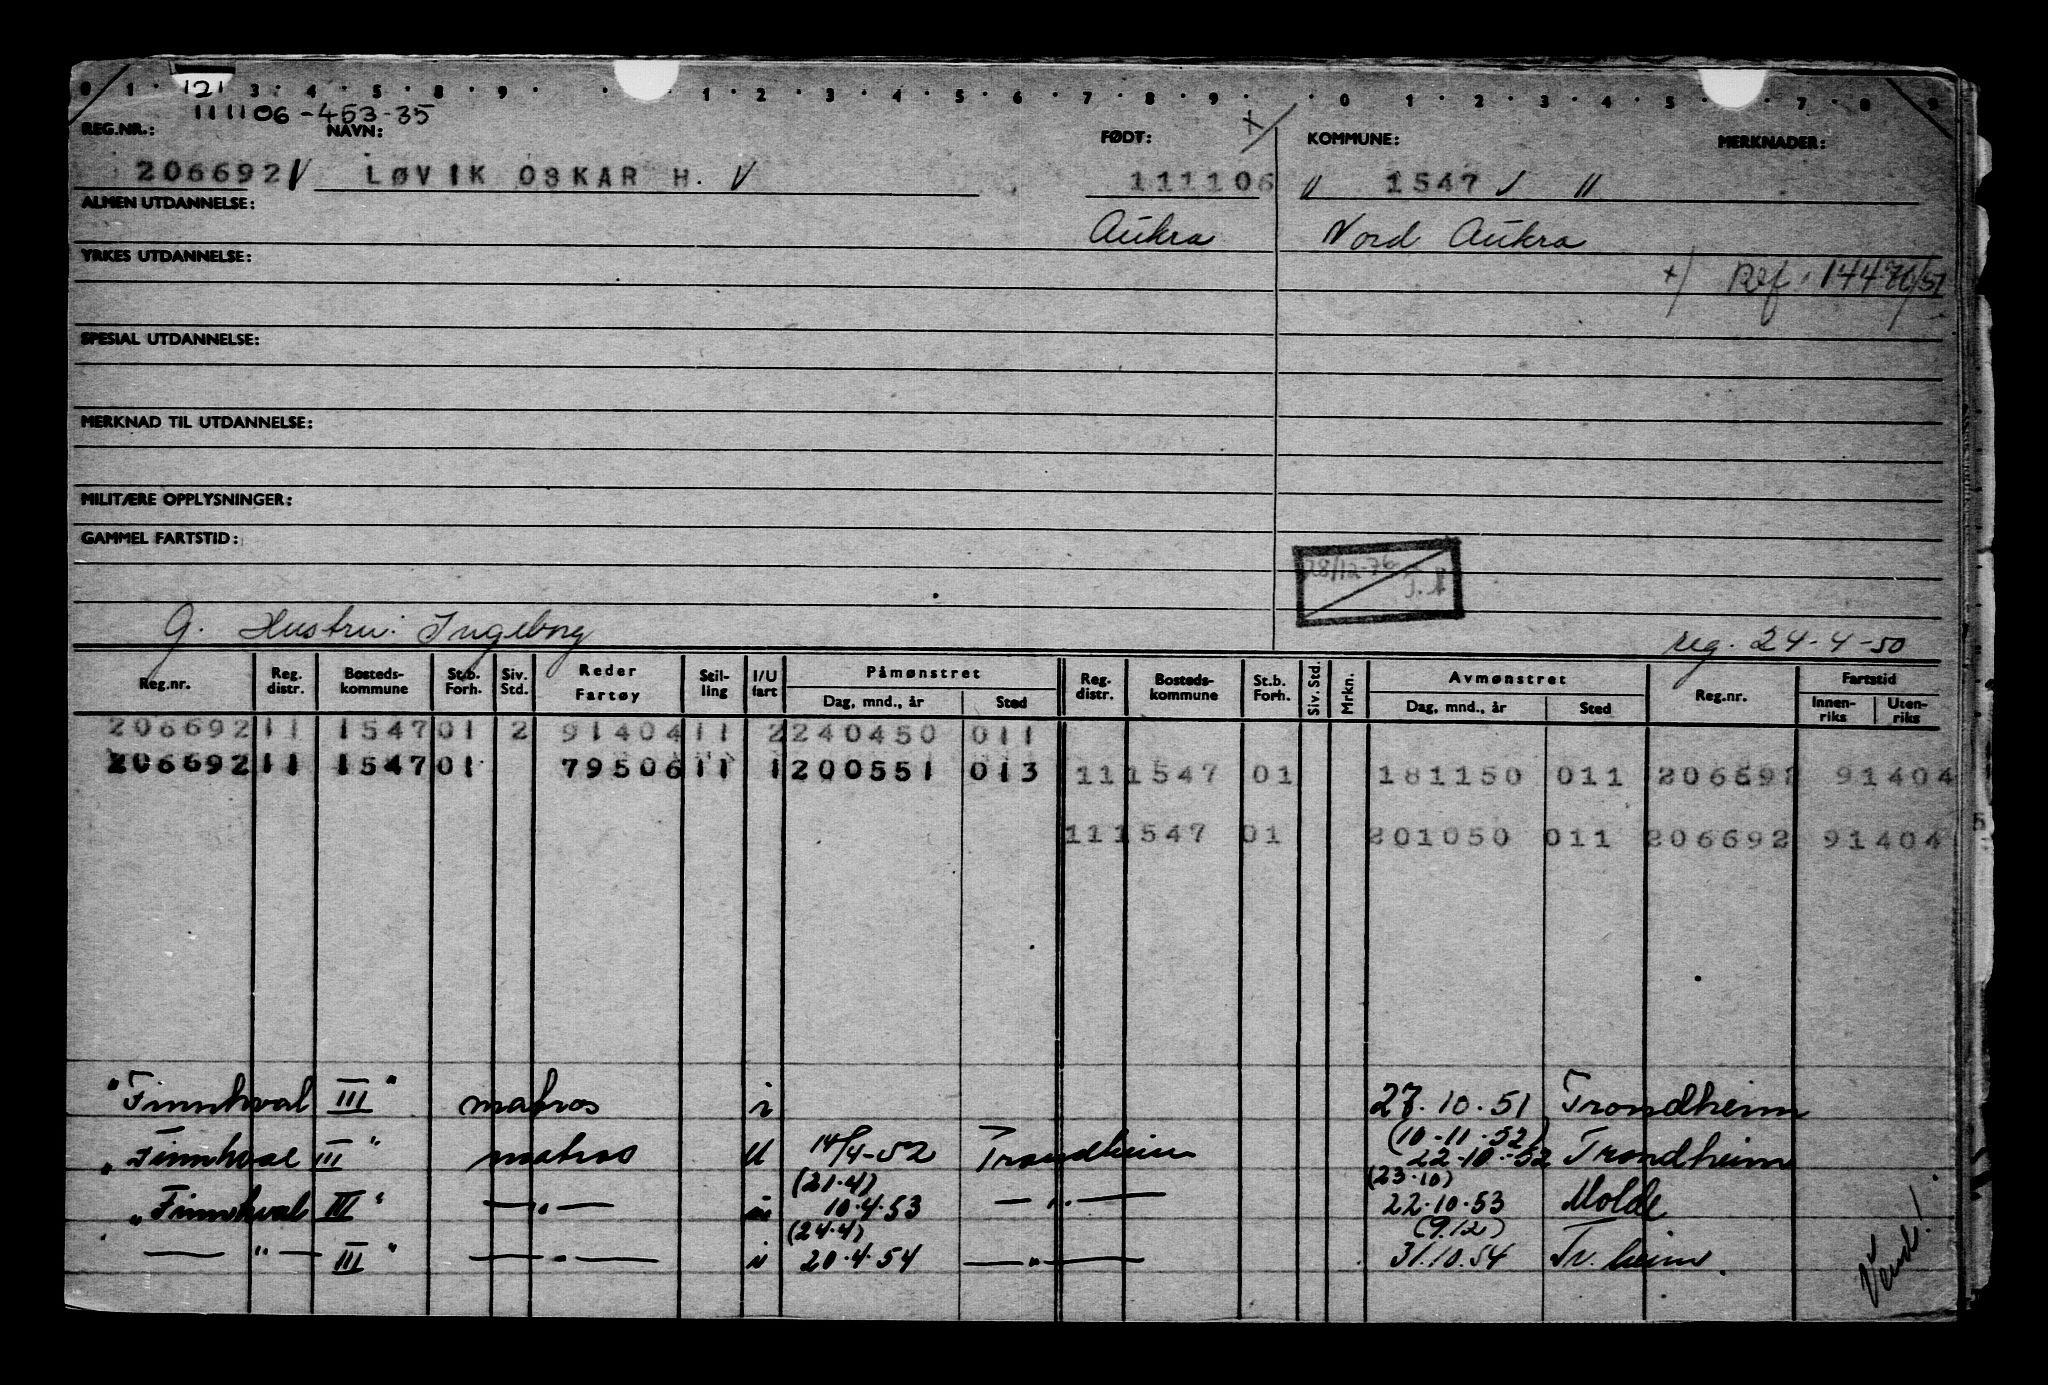 0 1 121 3 4 5 8 9 1 2 3 4 5 6 7 8 9 0 1 2 3 4 5 7 8 9
111106-453-35
REG.NR.: NAVN: FØDT: +/ KOMMUNE: MERKNADER:
206692 V LØVIK OSKAR H. V 111106 V 1547 V 11
ALMEN UTDANNELSE: Aukra Nord Aukra
YRKES UTDANNELSE: +) Ref.
SPESIAL UTDANNELSE:
MERKNAD TIL UTDANNELSE:
MILITÆRE OPPLYSNINGER:
GAMMEL FARTSTID:
28/12-76
G. Hustru: Ingeborg reg. 24-4-50
Reg.nr. Reg. distr. Bosteds-kommune St.b. Forh. Siv. Std. Reder Fartøy Stil-ling I/U fart Påmønstret Dag, mnd., år Sted Reg. distr. Bosteds-kommune St.b. Forh. Siv. Std. Mrkn. Avmønstret Dag, mnd., år Sted Reg.nr. Fartstid Innen-riks Uten-riks
206692 11 1547 01 2 91404 11 2 240450 011
206692 11 1547 01 79506 11 1 200551 013 11 1547 01 181150 011 206692 91404
11 1547 01 201050 011 206692 91404
"Finnhval III" matros i 27.10.51 Trondheim
(10-11-52)
"Finnhval III" matros U 14/4-52 Trondheim 22-10-52 Trondheim
(21.4) (23.10)
"Finnhval III" —"— 10.4.53 —"— 22.10.53 Molde
(24.4) (9.12)
—"— III" —"— i 20.4.54 —"— 31.10.54 Tr.heim.
Vend!